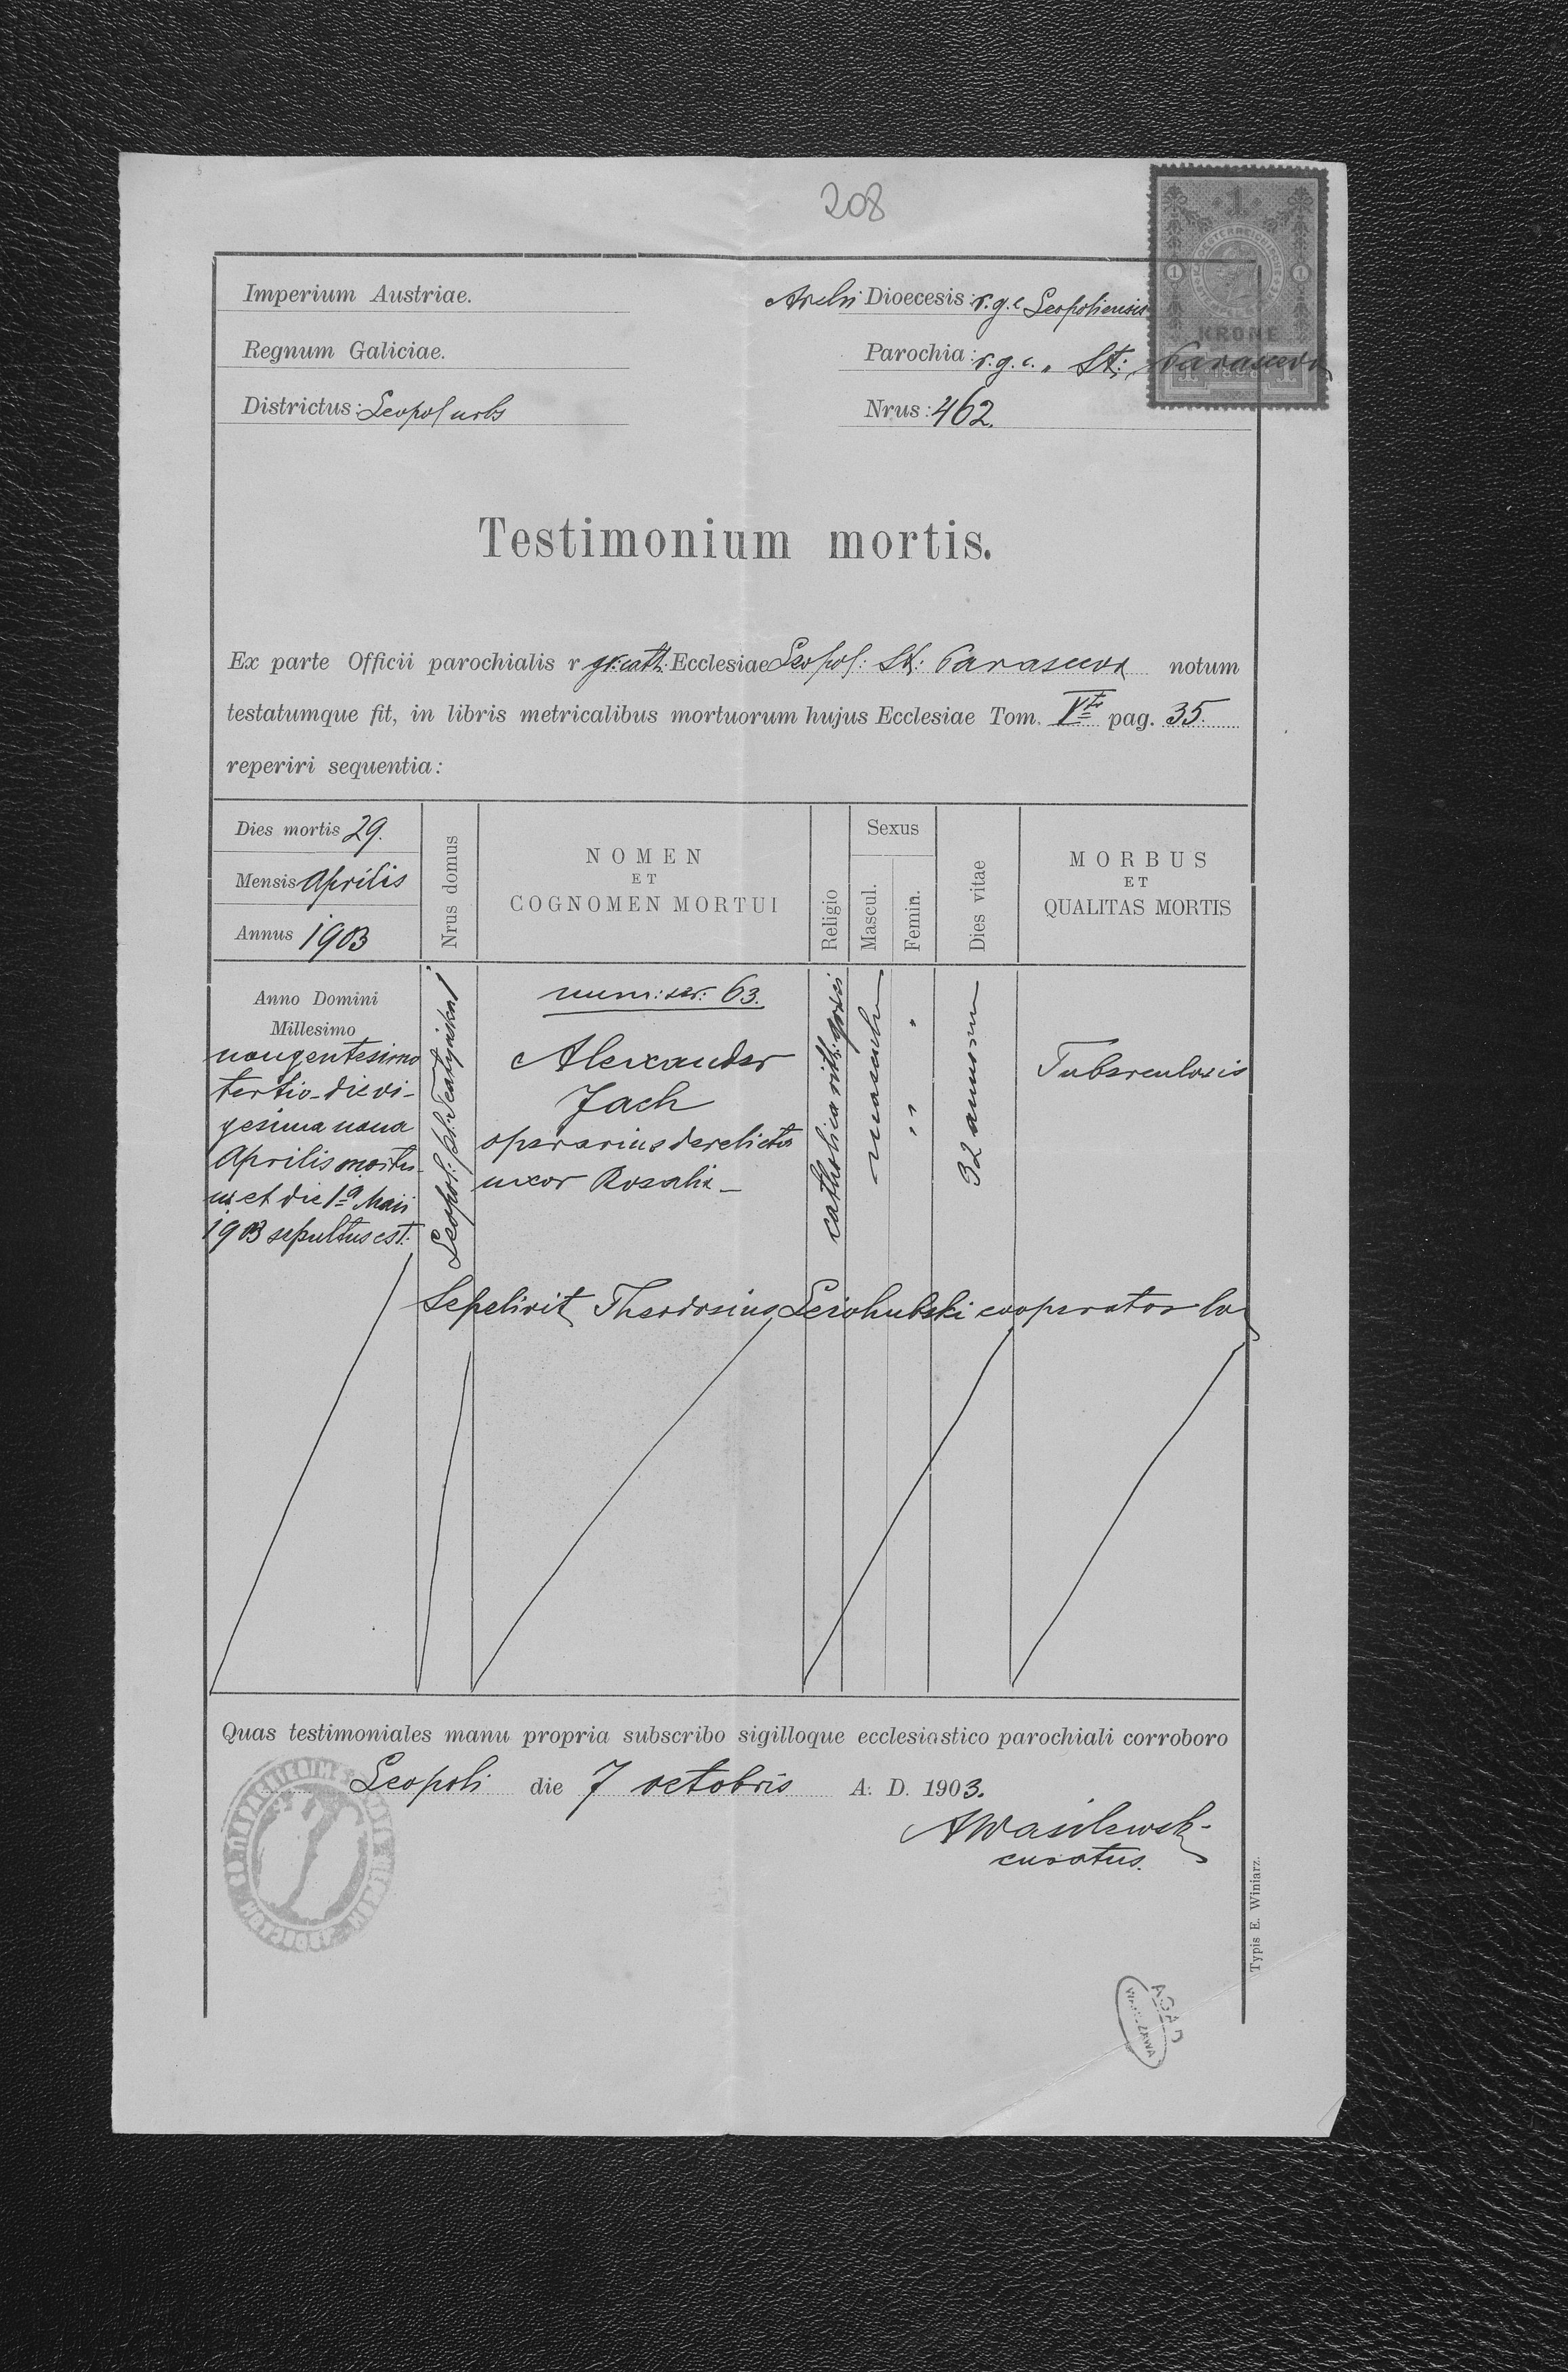 208
1
KRONE
Imperium Austriae.
Archi Dioecesis: r.g.c Leopoliensis
Regnum Galiciae.
Parochia: r.g.c. St: Parasceva
Districtus: Leopol urbs
Nrus: 462.
Testimonium mortis.
Ex parte Officii parochialis r gr: cath: Ecclesiae Leopol: St: Parasceva notum
testatumque fit, in libris metricalibus mortuorum hujus Ecclesiae Tom. V pag. 35.
reperiri sequentia:
Dies mortis 29.
Mensis Aprilis
Annus 1903
Nrus domus
NOMEN
ET
COGNOMEN MORTUI
Religio
Sexus
Mascul.
Femin.
Dies vitae
MORBUS
ET
QUALITAS MORTIS
Anno Domini
Millesimo
nongentesimo
tertio die vi-
gesima nona
Aprilis mortu-
us et die 1a Maii
1903 sepultus est.
Leopol: Teatyńska 1
num: ser: 63.
Alexander
Jach
operarius derelicta
uxor Rosalia -
catholica rit: graeci
masculus
" "
32 annorum
Tuberculosis
Sepelivit Theodosius cooperator
Quas testimoniales manu propria subscribo sigilloque ecclesiastico parochiali corroboro
Leopoli die 7 octobris A. D. 1903.
AWasilewsk
curatus.
Typis E. Winiarz.
AGAD
WARSZAWA